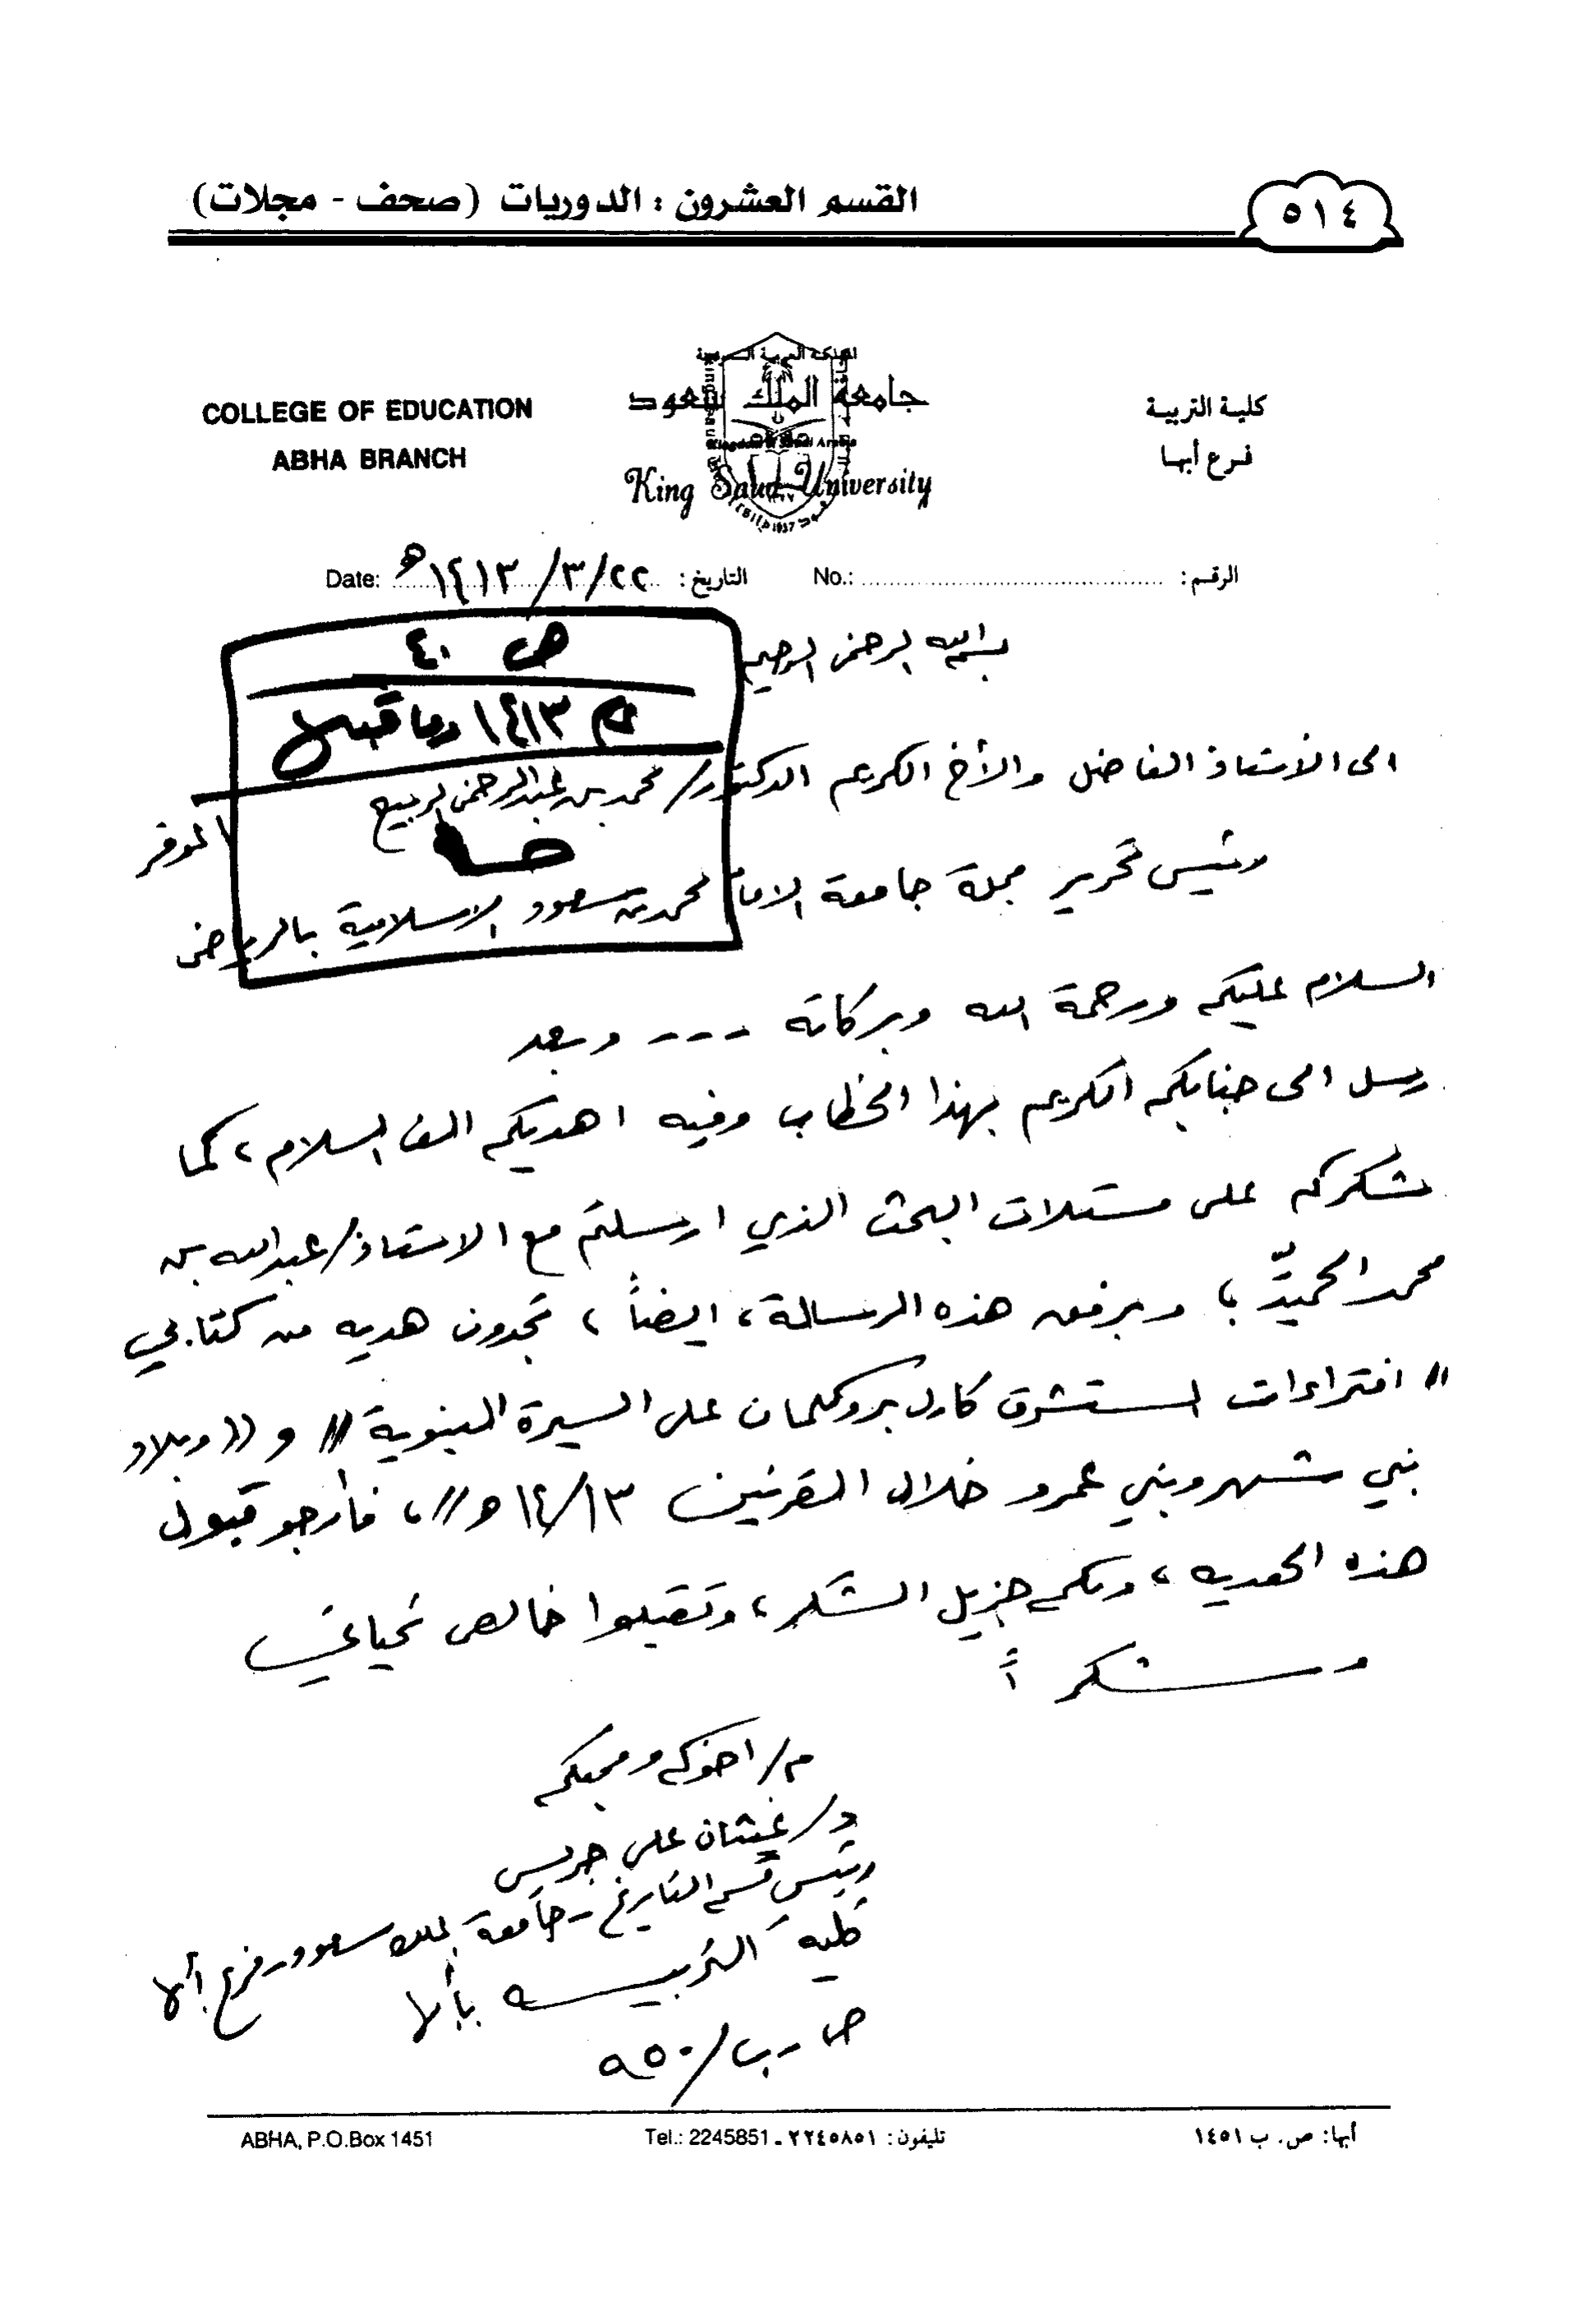 القسم العشرون : الدوريات (صحف - مجلات)
٥١٤
COLLEGE OF EDUCATION
ABHA BRANCH
جامعة الملك سعود
King Saud University
كلية التربية
فرع أبها
الرقم : No.:
التاريخ : ٢٢/٣/١٤١٣هـ Date:
ص ٤٠
م ١٤١٣ وما قبل
بسم الله الرحمن الرحيم
الى الأستاذ الفاضل والأخ الكريم الدكتور/ محمد بن عبدالرحمن الربيع الموقر
رئيس تحرير مجلة جامعة الامام محمد بن سعود الاسلامية بالرياض
السلام عليكم ورحمة الله وبركاته --- وبعد
الى جنابكم الكريم بهذا الخطاب وفيه اهديكم الف السلام، كما
نشكركم على مستلات البحث الذي ارسلتم مع الاستاذ/ عبدالله بن
محمد الحميّد، وبرفق هذه الرسالة، ايضاً، تجدون هديه من كتابي
"افتراءات المستشرق كارل بروكلمان على السيرة النبوية" و ((وبلاد
بني شهر وبني عمرو خلال القرنين ١٣/١٤هـ"، فأرجو قبول
هذه الهديه، ولكم جزيل الشكر، وتقبلوا خالص تحياتي
وشكراً
م/ اخوكم ومحبكم
د/ غيثان علي جريس
رئيس قسم التاريخ - جامعة الملك سعود - فرع أبها
كلية التربيه بأبها
ص - ب/ ٩٥٠
ABHA, P.O.Box 1451
Tel.: 2245851 - ٢٢٤٥٨٥١ : تليفون
أبها: ص. ب ١٤٥١